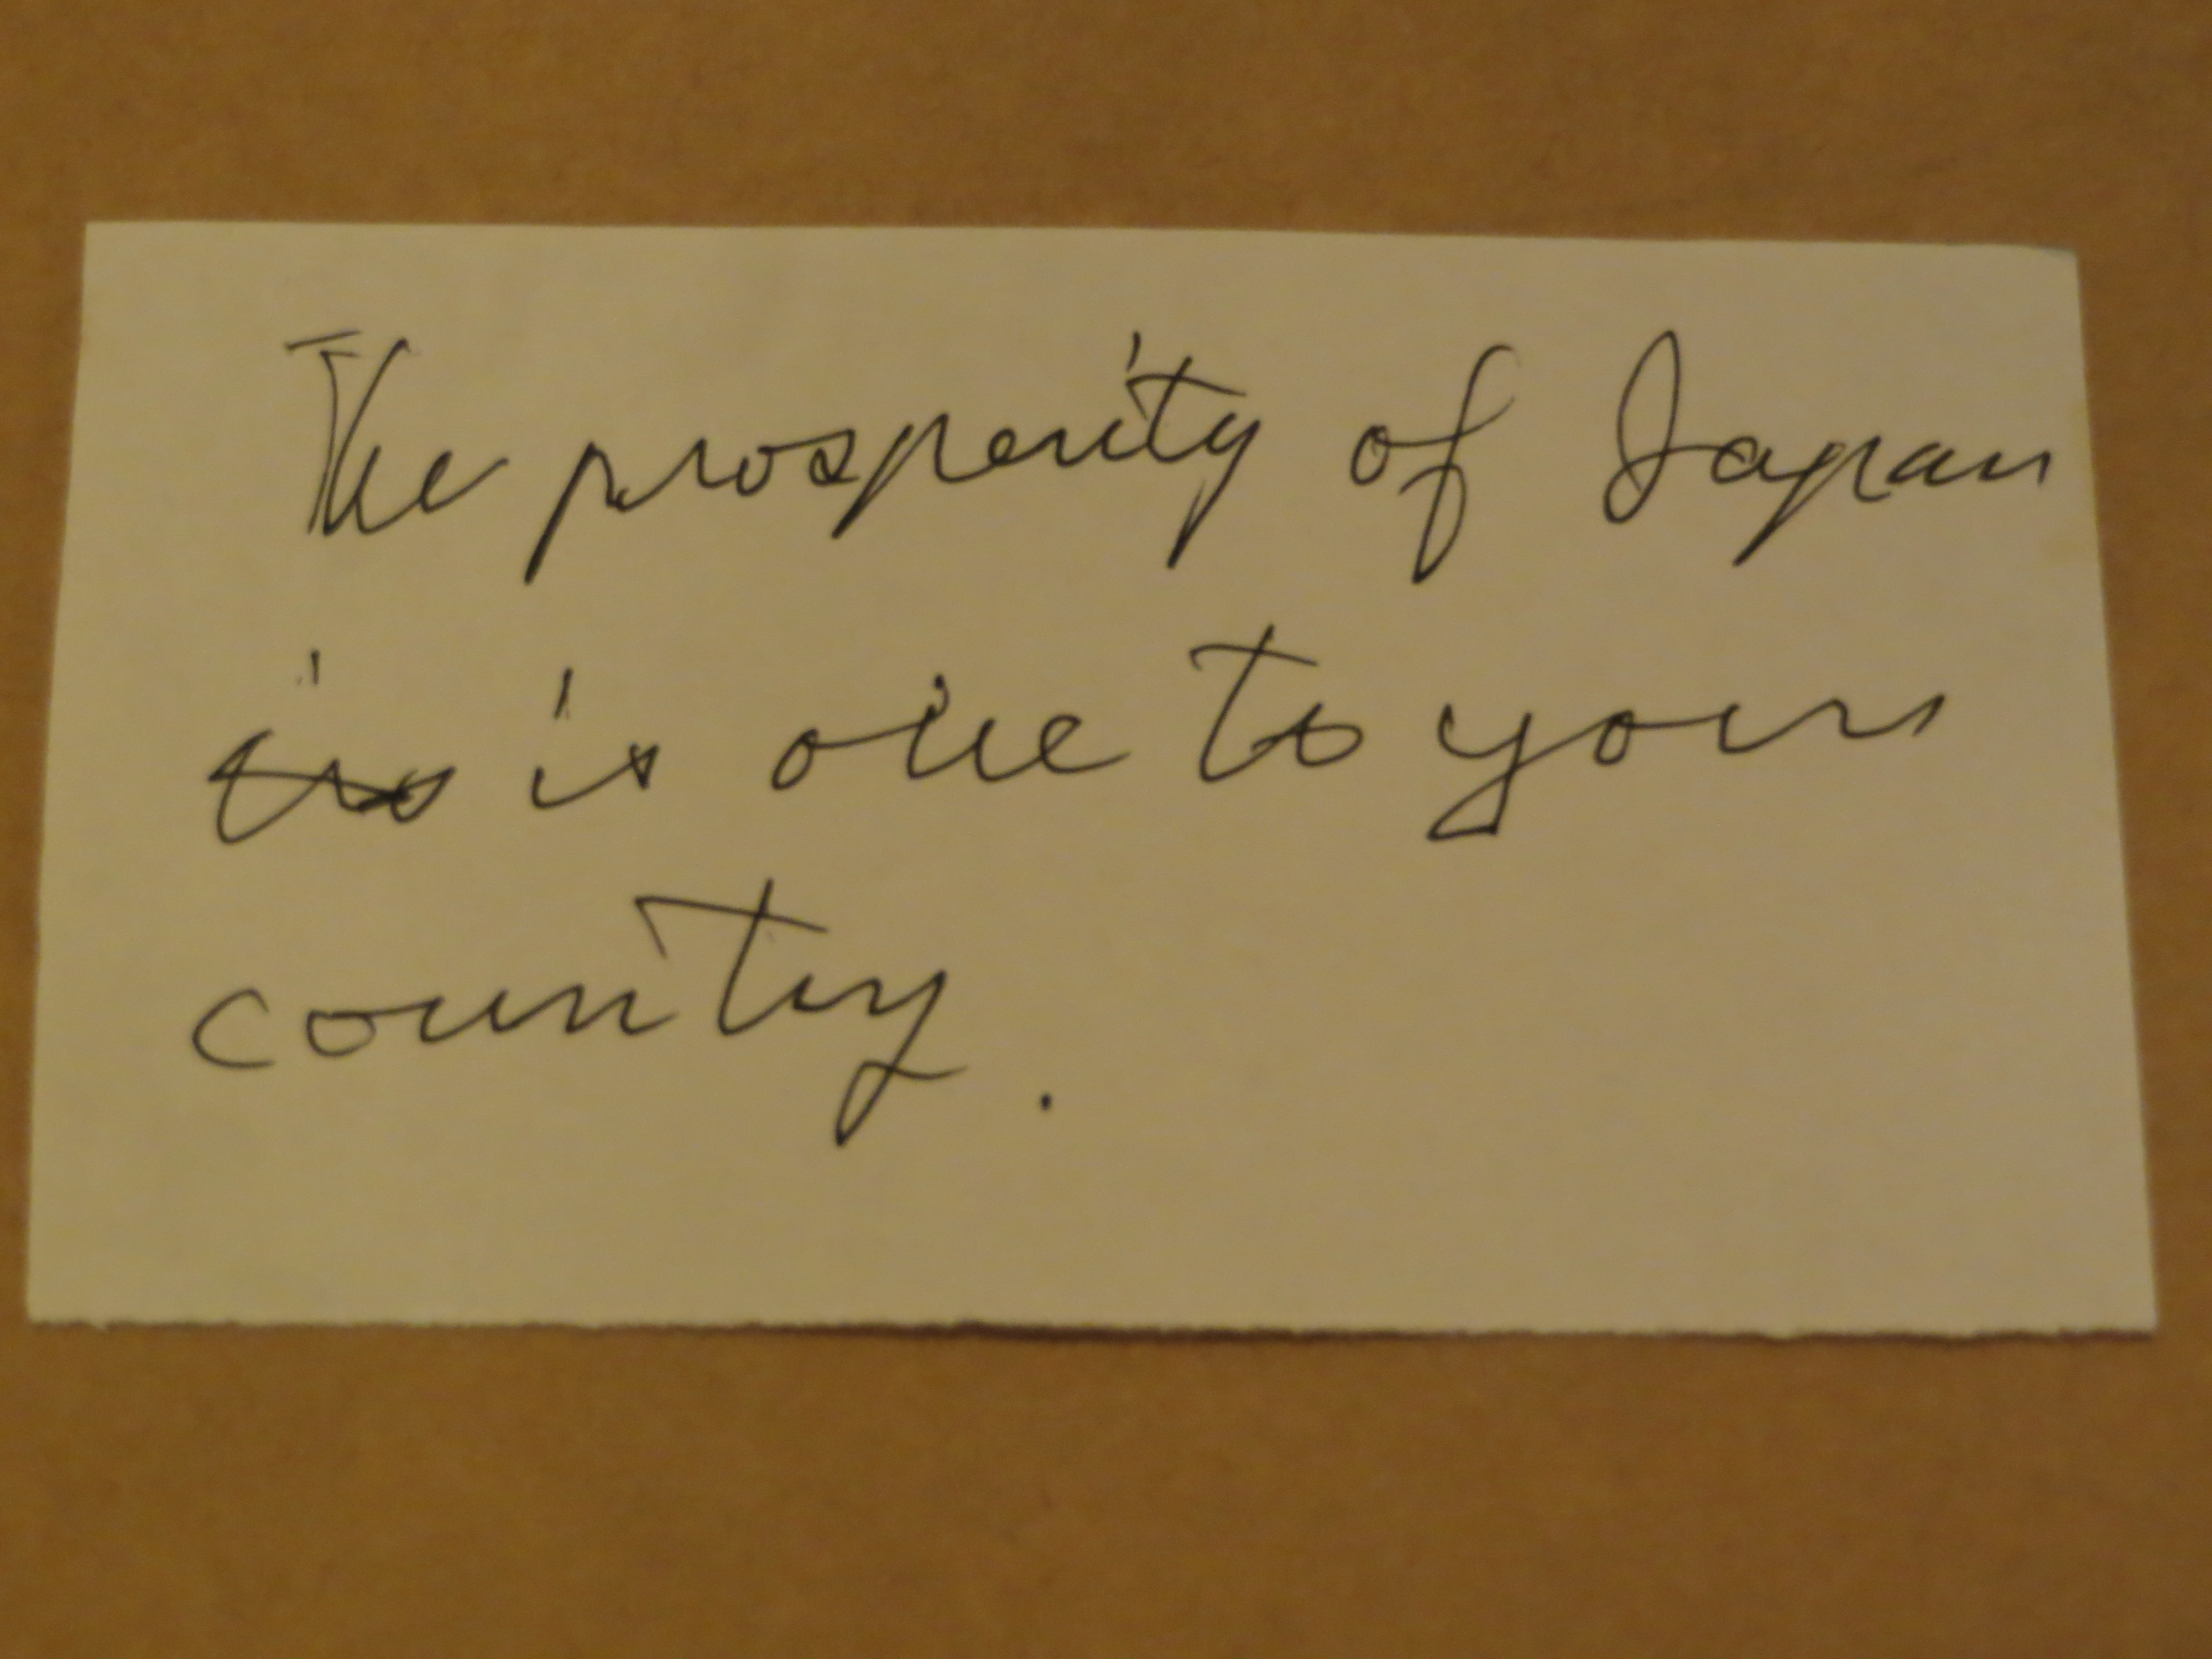 The prosperity of Japan
is is oile to yours
country.